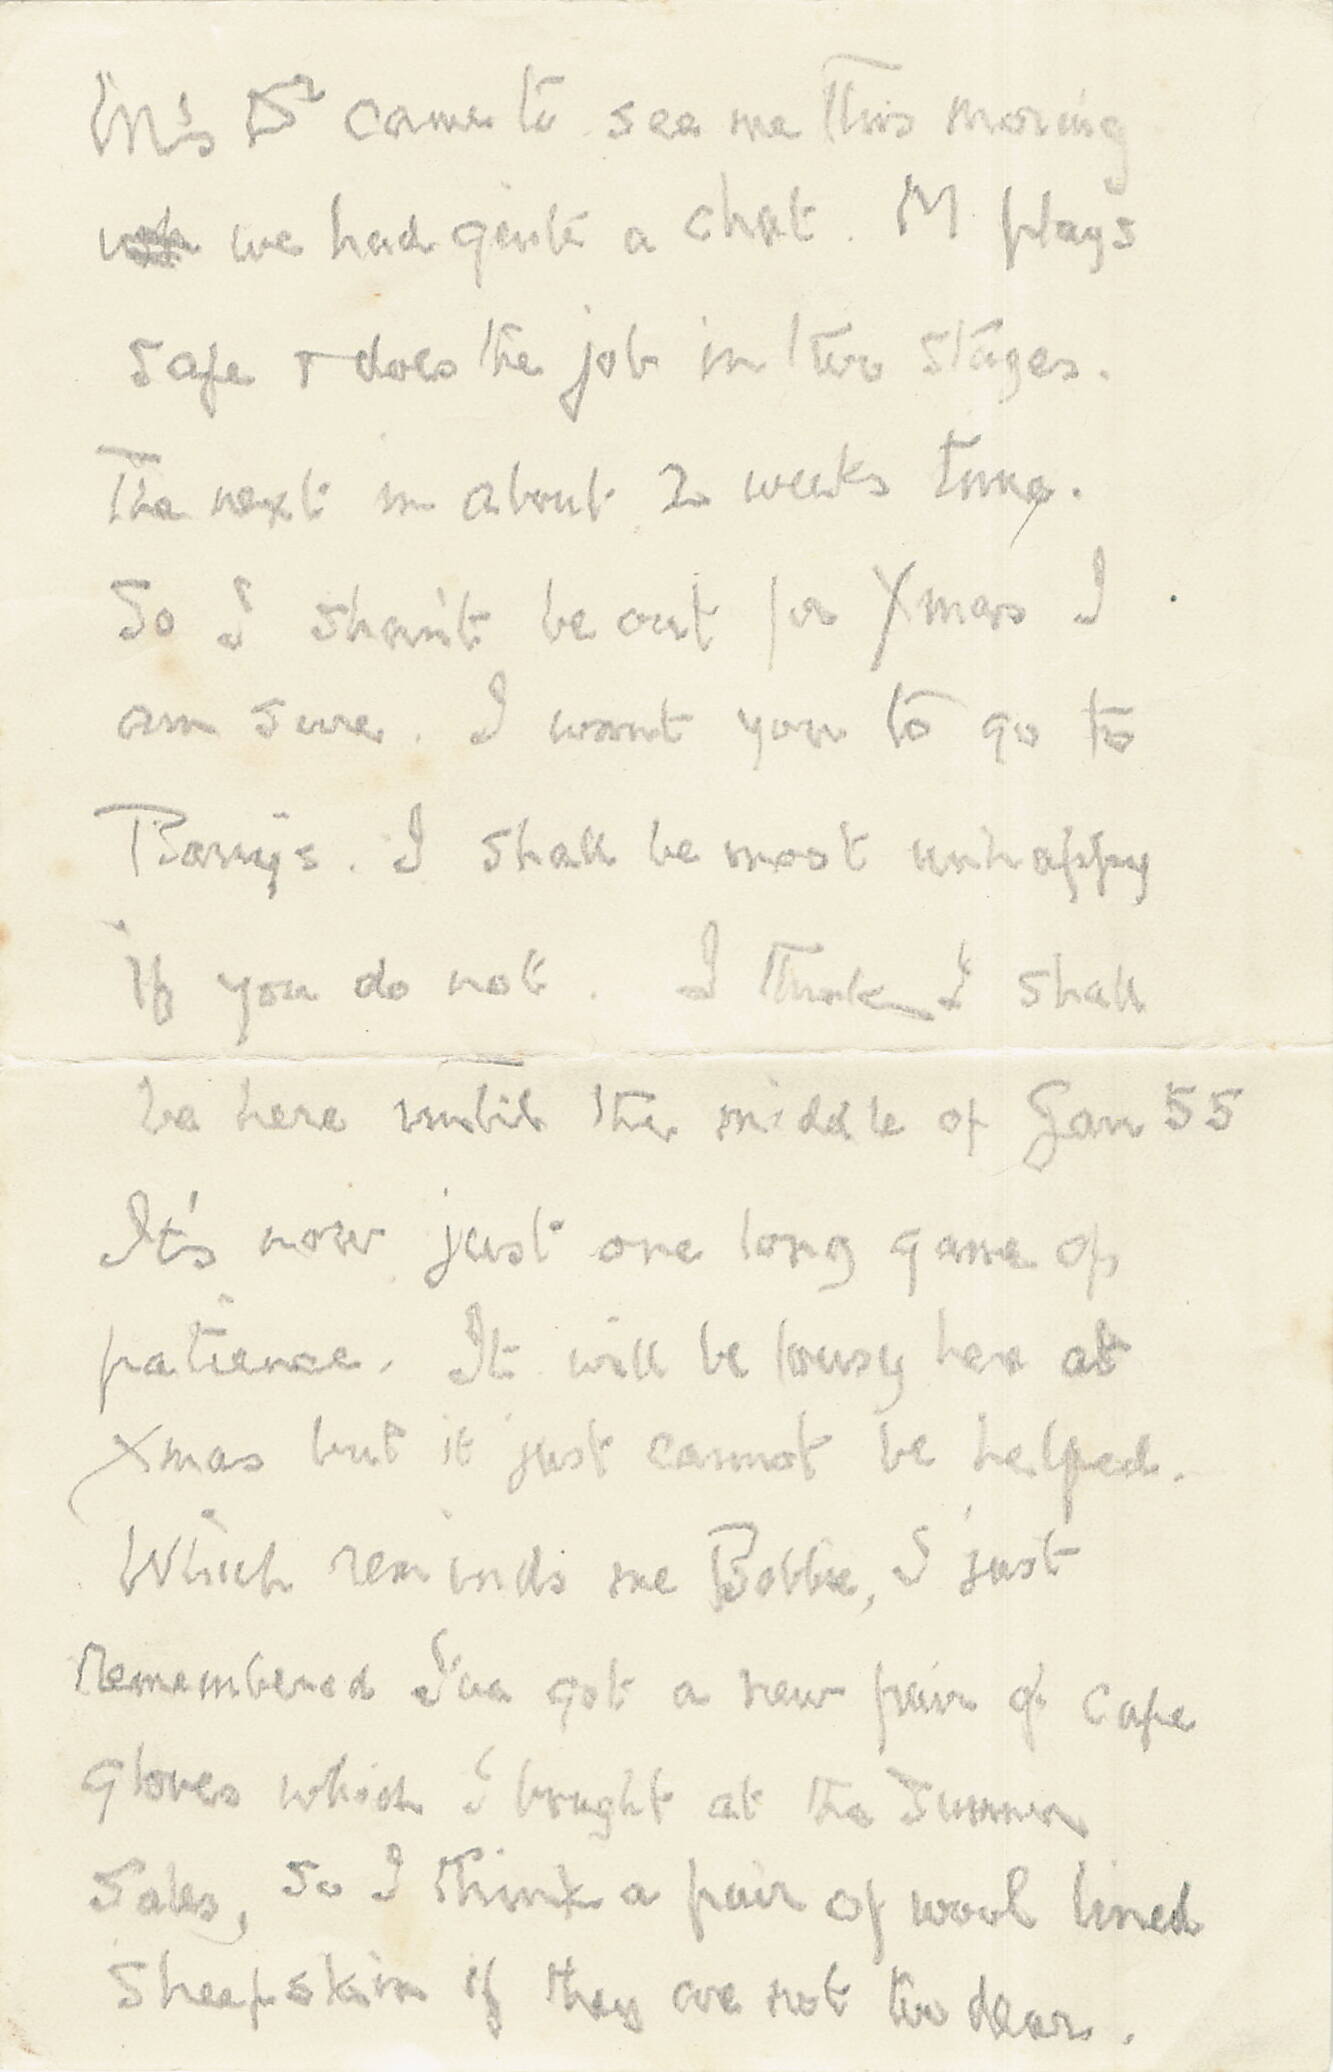 M's Dr came to see me this morning
we had quite a chat. M plays
safe & does the job in two stages.
The next in about 2 weeks time.
So I shan't be out for Xmas I
am sure. I want you to go to
Barry's. I shall be most unhappy
if you do not. I think I shall
be here until the middle of Jan 55
It's now just one long game of
patience. It will be lousy here at
Xmas but it just cannot be helped.
Which reminds me Bobbie, I just
remembered I've got a new pair of cape
gloves which I bought at the Summer
Sales, so I think a pair of wool lined
sheepskin if they are not too dear.